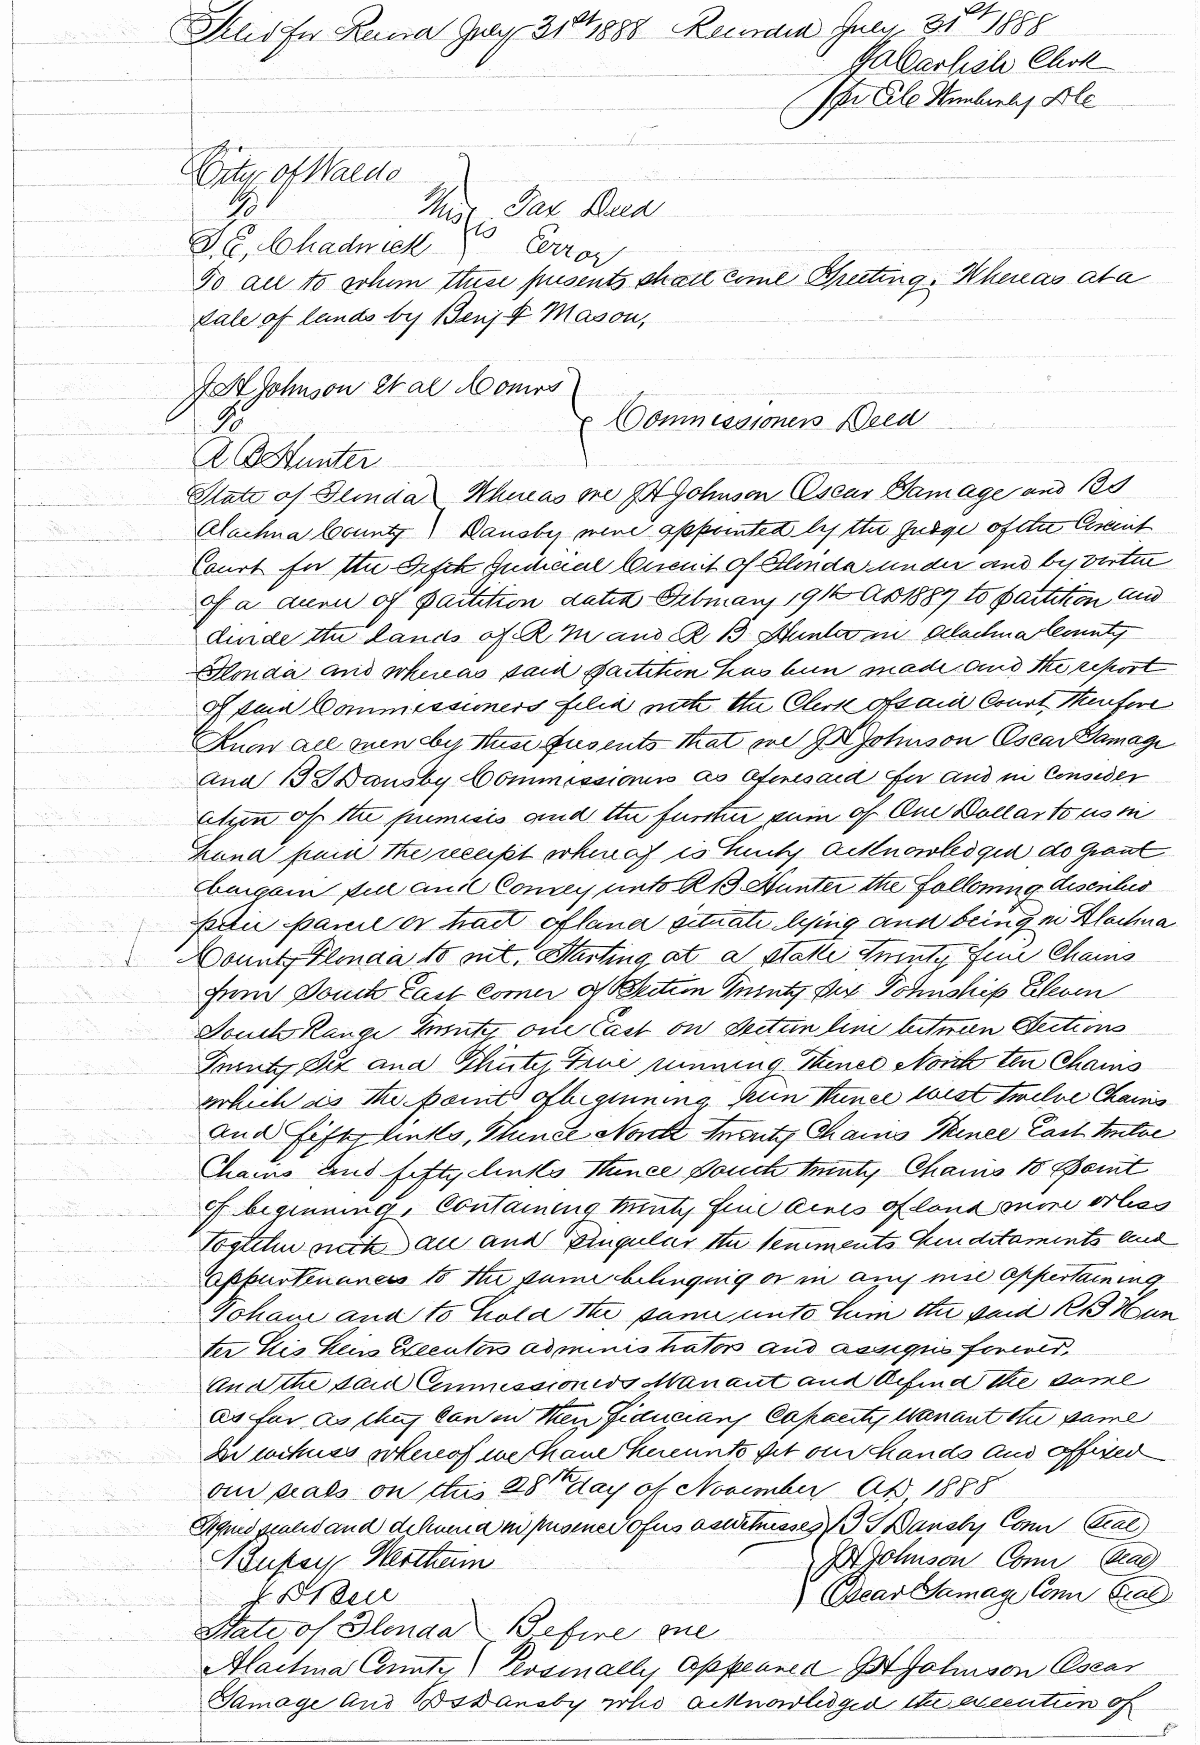 Filed for Record July 31st 1888 Recorded July 31st 1888
J A Carlisle Clerk
Per
City of Waldo
To This is Tax Deed
T. E. Chadwick Error
To all to whom these presents shall come Greeting. Whereas at a
sale of lands by Benj F Mason,
J H Johnson Et al Comrs
To Commissioners Deed
R B Hunter
State of Florida Whereas we J H Johnson Oscar Gamage and B S
Alachua County Dansby were appointed by the Judge of the Circuit
Court for the Fifth Judicial Circuit of Florida under and by virtue
of a decree of partition dated February 19th AD 1887 to partition and
divide the lands of R M and R B Hunter in Alachua County
Florida and whereas said partition has been made and the report
of said Commissioners filed with the Clerk of said Court, therefore
Know all men by these presents that we J H Johnson Oscar Gamage
and B S Dansby Commissioners as aforesaid for and in Consider
ation of the premises and the further sum of One Dollar to us in
hand paid the receipt whereof is hereby acknowledged do grant
bargain sell and Convey unto R B Hunter the following described
piece parcel or tract of land situate lying and being in Alachua
County Florida to wit, Starting at a stake twenty five Chains
from South East corner of Section Twenty Six Township Eleven
South Range Twenty one East on Section line between Sections
Twenty Six and Thirty Five running Thence North ten Chains
which is the point of beginning run thence west twelve Chains
and fifty links, Thence North twenty Chains Thence East twelve
Chains and fifty links Thence South twenty Chains to point
of beginning, Containing twenty five acres of land more or less
together with all and singular the tenements hereditaments and
appurtenances to the same belonging or in any wise appertaining
To have and to hold the same unto him the said R B Hun
ter his heirs Executors administrators and assigns forever,
And the said Commissioners Warrant and defend the same
as far as they can in their fiduciary Capacity Warrant the same
In witness whereof we have hereunto set our hands and affixed
our seals on this 28th day of November AD 1888
Signed sealed and delivered in presence of us as witnesses B S Dansby Comr Seal
Wertheim J H Johnson Comr Seal
Oscar Gamage Comr Seal
State of Florida Before me
Alachua County Personally appeared J H Johnson Oscar
Gamage and B S Dansby who acknowledged the execution of